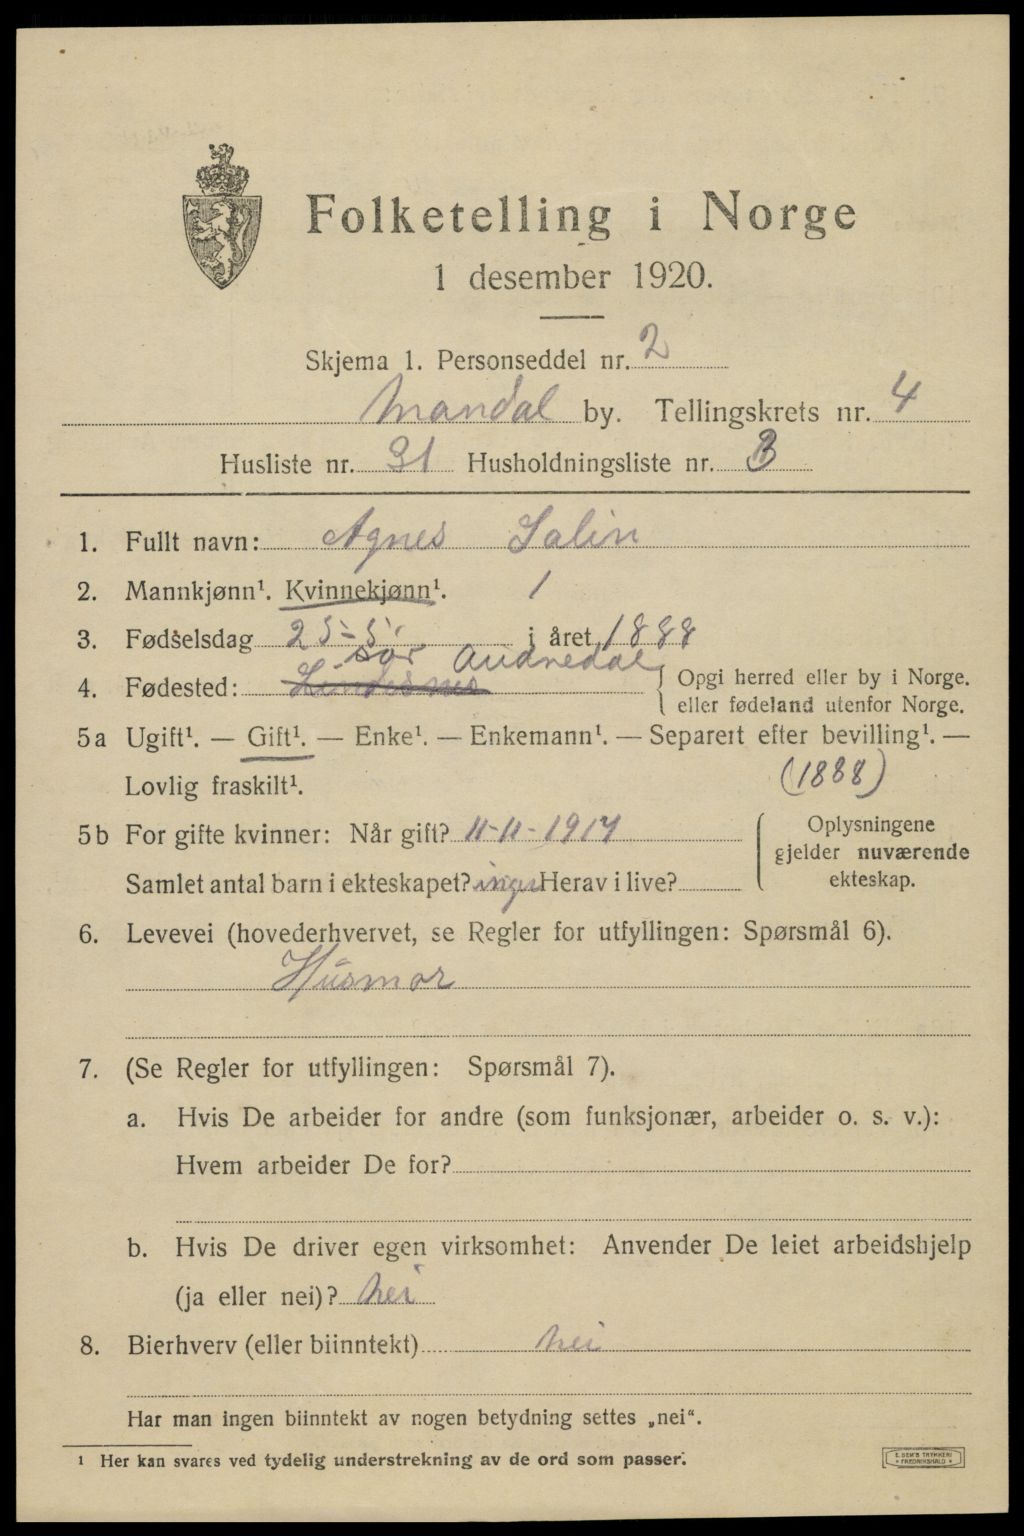 Folketelling i Norge
1 desember 1920.
Skjema 1. Personseddel nr. 2
Mandal by. Tellingskrets nr. 4
Husliste nr. 31 Husholdningsliste nr. 3
1. Fullt navn: Agnes Salin
2. Mannkjønn¹. Kvinnekjønn¹. 1
3. Fødselsdag 25-5. i året 1888
Sør Audnedal
4. Fødested: Lindesnes { Opgi herred eller by i Norge.
eller fødeland utenfor Norge.
5a Ugift¹. — Gift¹. — Enke¹. — Enkemann¹. — Separert efter bevilling¹. —
Lovlig fraskilt¹. (1888)
5b For gifte kvinner: Når gift? 11-11-1917
Samlet antal barn i ekteskapet? ingen Herav i live?
Oplysningene
gjelder nuværende
ekteskap.
6. Levevei (hovederhvervet, se Regler for utfyllingen: Spørsmål 6).
Husmor
7. (Se Regler for utfyllingen: Spørsmål 7).
a. Hvis De arbeider for andre (som funksjonær, arbeider o. s. v.):
Hvem arbeider De for?
b. Hvis De driver egen virksomhet: Anvender De leiet arbeidshjelp
(ja eller nei)? nei
8. Bierhverv (eller biinntekt) nei
Har man ingen biinntekt av nogen betydning settes „nei".
¹ Her kan svares ved tydelig understrekning av de ord som passer.
E. SEM'S TRYKKERI
• FREDRIKSHALD •